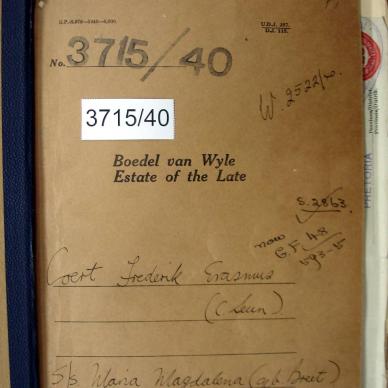 U.D.J. 297.
D.J. 115.
No. 3715/40
W 2522/40
3715/40
Boedel van Wyle
Estate of the Late
S. 2863
now
G.F. 48
593-15
Coert Frederik Erasmus
S/S Maria Magdalena (geb Breet)
PRETORIA